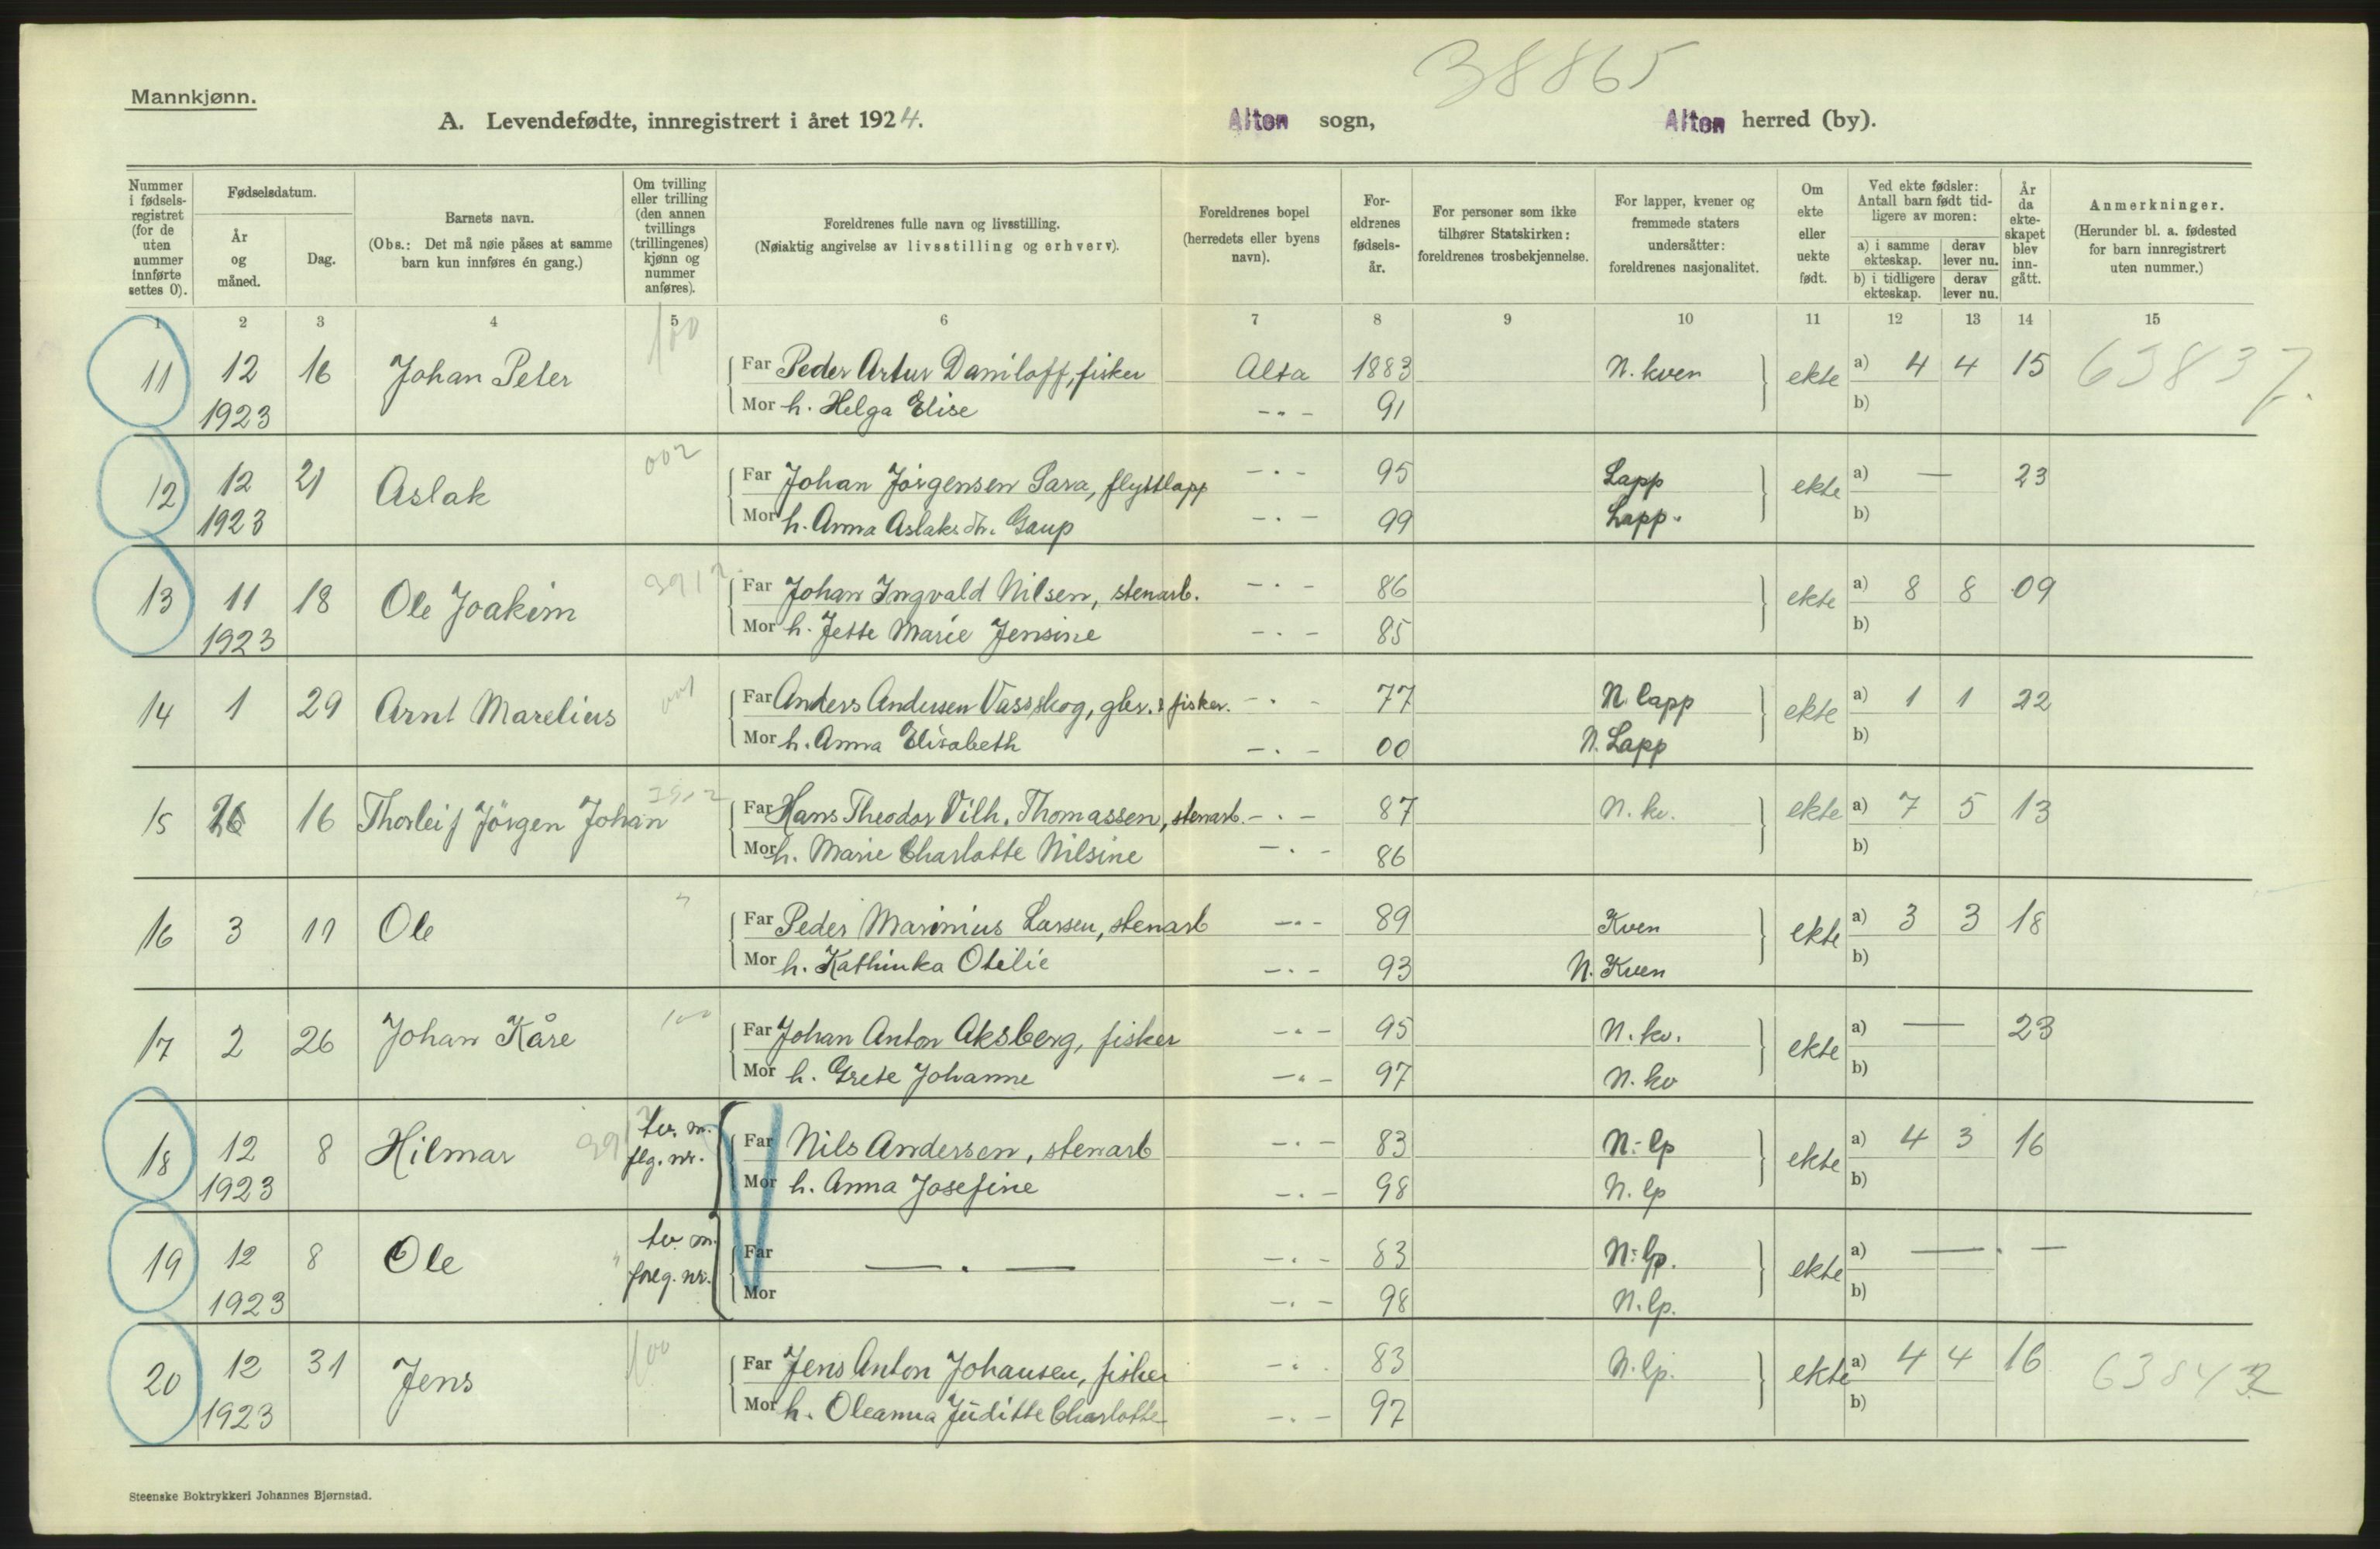 38865
Mannkjønn.
A. Levendefødte, innregistrert i året 1924.
Alten sogn,
Alten herred (by).
Nummer i fødsels-registret (for de uten nummer innførte settes 0).
Fødselsdatum.
År og måned.
Dag.
Barnets navn.
(Obs.: Det må nøie påses at samme barn kun innføres én gang.)
Om tvilling eller trilling (den annen tvillings (trillingenes) kjønn og nummer anføres).
Foreldrenes fulle navn og livsstilling.
(Nøiaktig angivelse av livsstilling og erhverv).
Foreldrenes bopel (herredets eller byens navn).
For-eldrenes fødsels-år.
For personer som ikke tilhører Statskirken: foreldrenes trosbekjennelse.
For lapper, kvener og fremmede staters undersåtter: foreldrenes nasjonalitet.
Om ekte eller uekte født.
Ved ekte fødsler: Antall barn født tid-ligere av moren:
a) i samme ekteskap.
derav lever nu.
b) i tidligere ekteskap.
derav lever nu.
År da ekte-skapet blev inn-gått.
Anmerkninger.
(Herunder bl. a. fødested for barn innregistrert uten nummer.)
1 2 3 4 5 6 7 8 9 10 11 12 13 14 15
100
11 12 16 Johan Peter Far Peder Artur Daniloff, fisker Alta 1883 N. kven ekte a) 4 4 15 63837.
1923 Mor h. Helga Elise -"- 91 b)
002
12 12 21 Aslak Far Johan Jörgensen Sara, flyttlapp -"- 95 Lapp ekte a) — 23
1923 Mor h. Anna Aslaks.dtr. Gaup -"- 99 Lapp. b)
3912
13 11 18 Ole Joakim Far Johan Ingvald Nilsen, stenarb. -"- 86 ekte a) 8 8 09
1923 Mor h. Jette Marie Jensine -"- 85 b)
14 1 29 Arnt Marelius Far Anders Andersen Vassskog, gbr. & fisker. -"- 77 N. lapp ekte a) 1 1 22
Mor h. Anna Elisabeth -"- 00 N. Lapp b)
3912
15 16 Thorleif Jörgen Johan Far Hans Theodor Vilh. Thomassen, stenarb. -"- 87 N. kv. ekte a) 7 5 13
Mor h. Marie Charlotte Nilsine -"- 86 b)
16 3 11 Ole " Far Peder Marinius Larsen, stenarb -"- 89 Kven ekte a) 3 3 18
Mor h. Kathinka Otilie -"- 93 N. Kven b)
100
17 2 26 Johan Kåre Far Johan Anton Aksberg, fisker -"- 95 N. kv. ekte a) — 23
Mor h. Grete Johanne -"- 97 N. kv b)
18 12 8 Hilmar 391 tv. m. flg. nr. Far Nils Andersen, stenarb -"- 83 N. lp ekte a) 4 3 16
1923 Mor h. Anna Josefine -"- 98 N. lp b)
19 12 8 Ole " tv. m. foreg. nr. Far — " — -"- 83 N. lp. ekte a) — " —
1923 Mor -"- 98 N. lp. b)
100
20 12 31 Jens Far Jens Anton Johansen, fisker -"- 83 N. lp. ekte a) 4 4 16 63843
1923 Mor h. Oleanna Juditte Charlotte -"- 97 b)
Steenske Boktrykkeri Johannes Bjørnstad.